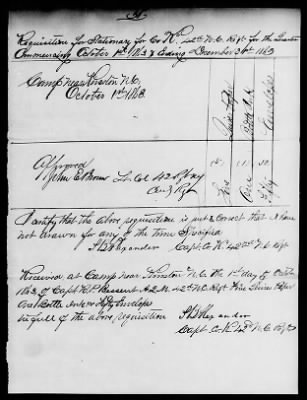 Requisition for Stationary for Co K 42nd N.C. Regt for the Quarter
Commencing October 1st 1863 & Ending December 31st 1863
Camp near Kinston N.C.
October 1st 1863
Quire Paper
Bottle Ink
Envelops
One
Fifty
Approved
John E Brown Lt Col 42
I certify that the above requisition is just & correct that I have
not drawn for any of the time Specified
Capt. Co. K. 42nd N.C. Regt
Received at Camp near Kinston N.C. the 1st day of October
1863 of Capt A.Q.M. 42nd N.C. Regt Paper
One Bottle Ink Fifty Envelops
in full of the above requisition
Capt. Co. K 42nd N.C. Regt